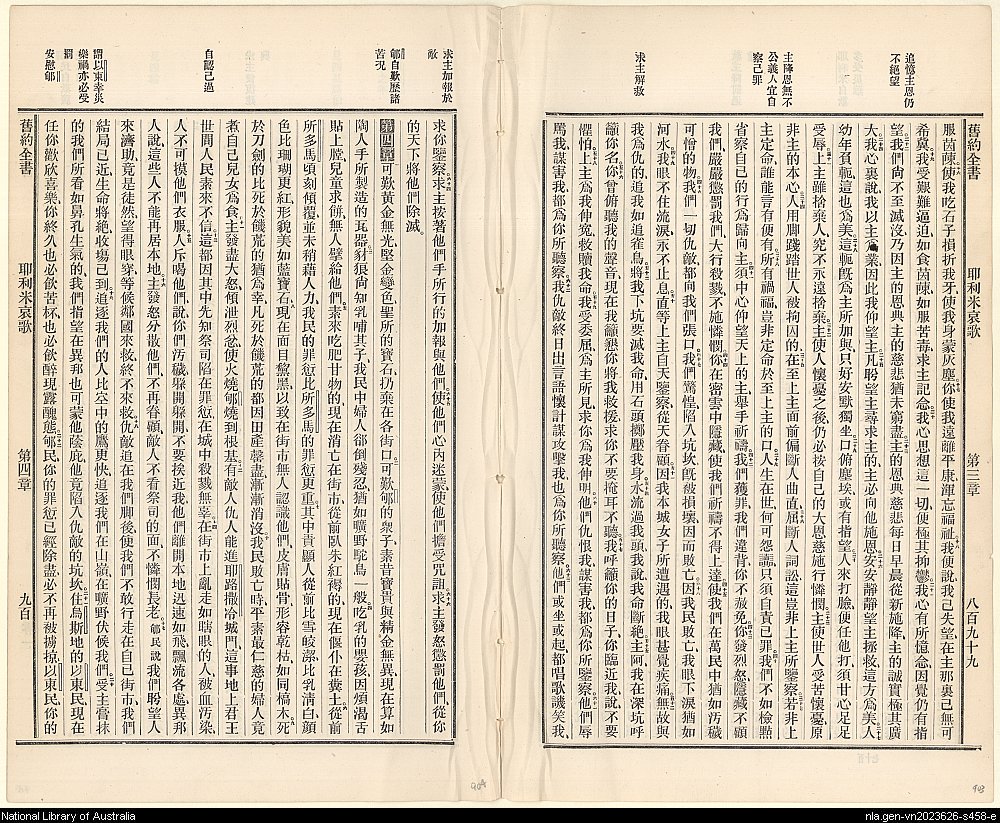 追憶主恩仍
不絕望
主降恩無不
公義人宜自
察己罪
求主解救
舊約全書 耶利米哀歌 第三章 八百九十九
服茵蔯、使我吃石子損折我牙、使我身蒙灰塵、你使我遠離平康、渾忘福祉、我便說、我己失望、在主那裏己無可
希冀、我受艱難逼迫、如食茵蔯、如服苦毒、求主記念、我心思想這一切、便極其抑鬱、我心有所憶念、因覺仍有指
望、我們尙不至滅沒、乃因主的恩典、主的慈悲猶未窮盡、主的恩典慈悲、每日早晨從新施降、主的誠實極其廣
大、我心裏說、我以主爲業、因此我仰望主、凡盼望主尋求主的、主必向他施恩、安安靜靜望主拯救、這方爲美、人
幼年負軛、這也爲美、這軛旣爲主所加與、只好安默獨坐、口俯塵埃、或有指望、人來打臉、便任他打、須甘心足足
受辱、主雖拾棄人、究不永遠捨棄、主使人懷憂之後、仍必按自己的大恩慈施行憐憫、主使世人受苦懷憂、原
非主的本心、人用脚踐踏世人被拘囚的、在至上主面前偏斷人曲直、屈斷人詞訟、這豈非上主所鑒察、若非上
主定命、誰能言有便有、所有禍福、豈非定命於至上主的口、人生在世、何可怨讟、只須自責己罪、我們不如檢點
省察自己的行爲、歸向主、須中心仰望天上的主、舉手祈禱、我們獲罪、我們違背、你不赦免、你發烈怒、隱藏不顧
我們、嚴嚴懲罰我們、大行殺戮不施憐憫、你在密雲中隱藏、使我們祈禱不得上達、使我們在萬民中猶如汚穢
可憎的物、我們一切仇敵、都向我們張口、我們驚惶陷入坑坎、旣被損壞、因而敗亡、因我民敗亡、我眼下淚猶如
河水、我眼不住流淚、永不止息、直等上主自天鑒察從天眷顧、因我本城女子所遭遇的、我眼甚覺疾痛、無故與
我爲仇的、追我如追雀鳥、將我下坑、要滅我命、用石頭擲壓我身、水流過我頭、我說我命斷絕、主阿、我在深坑呼
籲你名、你曾俯聽我的聲音、現在我籲懇你將我救援、求你不要掩耳不聽、我呼籲你的日子、你臨近我說、不
懼怕、上主爲我伸寃、救贖我命、我受委屈、爲主所見、求你爲我伸明、他們仇恨我、謀害我、都爲你所鑒察、他們辱
罵我、謀害我、都爲你所聽察、我仇敵終日出言語、懷計謀、攻擊我、也爲你所聽察、他們或坐或起、都唱歌譏笑我、
求主加報於
敵
郇自歎歷諸
苦況
自認己過
謂以東幸災
樂禍亦必受
罰
安慰郇
求你鑒察、求主按著他們手所行的加報與他們、使他們心內迷蒙、使他們擔受咒詛、求主發怒懲罰他們、從你
的天下將他們除滅。
第四章 可歎黃金無光、堅金變色、聖所的寶石、扔棄在各街口、可歎郇的衆子、素昔寶貴與精金無異、現在算如
陶人手所製造的瓦器、豺狼尙知乳哺其子、我民中婦人卻倒殘忍、猶如曠野駝鳥一般、吃乳的嬰孩、因煩渴舌
貼上膛、兒童求餅、無人擘給他們、素來吃肥甘物的、現在消亡在街市、從前臥朱紅褥的、現在偃仆在糞土、從前
所多馬頃刻傾覆、並未稍藉人力、我民的罪愆、比所多馬的罪愆更重、其中貴顯人、從前比雪皎潔、比乳淸白、顏
色比珊瑚更紅、形貌美如藍寶石、現在面目黧黑、以致在街市無人認識他們、皮膚貼骨、形容乾枯如同槁木、死
於刀劍的、比死於饑荒的猶爲幸、凡死於饑荒的、都因田產罄盡、漸漸消沒、我民敗亡時、平素最仁慈的婦人、竟
煮自己兒女爲食、主發盡大怒、傾泄烈忿、使火燒郇、燒到根基、有敵人仇人能進耶路撒冷城門、這事地上君王
世間人民素來不信、這都因其中先知祭司陷在罪愆、在城中殺戮無辜、在街市上亂走如瞎眼的人、被血汚染、
人不可摸他們衣服、人斥喝他們說、你們汚穢、躱開躱開、不要挨近我、他們離開本地迅速如飛、飄流各處、異邦
人說、這些人不能再居本地、主發怒分散他們、不再眷顧、敵人不看祭司的面、不憐憫長老、郇民說我們盼望人
來濟助、竟是徒然、望得眼穿、等候鄰國來救、終不來救、仇敵追在我們脚後、使我們不敢行走在自己街市、我們
結局己近、生命將絕、收場己到、追逐我們的人、比空中的鷹更快、追逐我們在山嶺、在曠野伏候我們、受主膏抹
的、我們所看如鼻孔生氣的、我們指望在異邦也可蒙他蔭庇、他竟陷入仇敵的坑坎、住烏斯地的以東民、現在
任你歡欣喜樂、你終久也必飲苦杯、也必飲醉、現露醜態、郇民、你的罪愆已經除盡、必不再被擄掠、以東民、你的
舊約全書 耶利米哀歌 第四章 九百
90A
903
National Library of Australia
nla.gen-vn2023626-s458-e